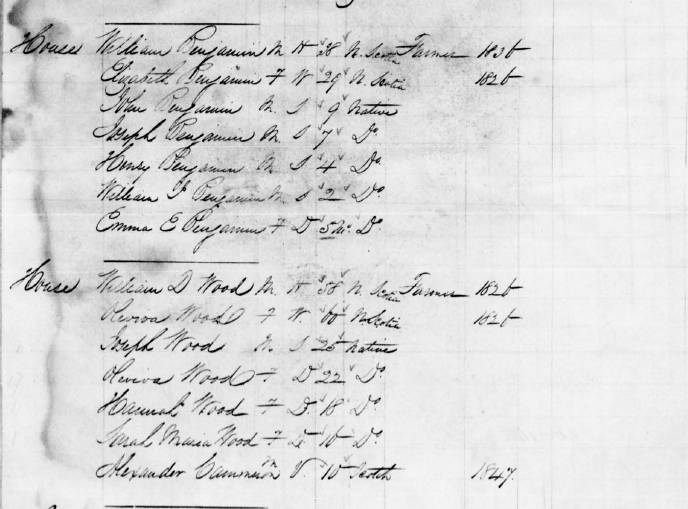 House William Benjamin M H 38 N. Scotia Farmer 1836
Elizabeth Benjamin F W 29 N. Scotia 1826
John Benjamin M. S 9 Native
Joseph Benjamin M. S 7 Do
Henry Benjamin M. S 4 Do
William J Benjamin M S 2 Do
Emma E Benjamin F D 5 Mo. Do
House William D Wood M. H 58 N. Scotia Farmer 1826
Wood F W. N Scotia 1826
Joseph Wood M. S 25 Native
Wood F D 22 Do
Hannah Wood F D. 18 Do
Sarah Maria Wood F D. 16 Do
Alexander Cammeron M 10 Scotch 1847.